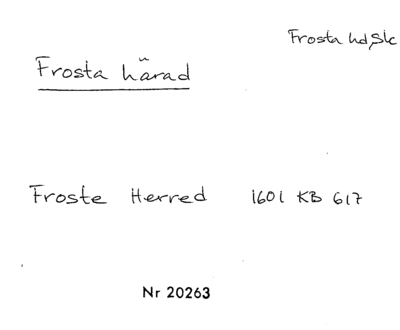 Frosta hd, Sk
Frosta härad
Froste Herred 1601 KB 617
Nr 20263